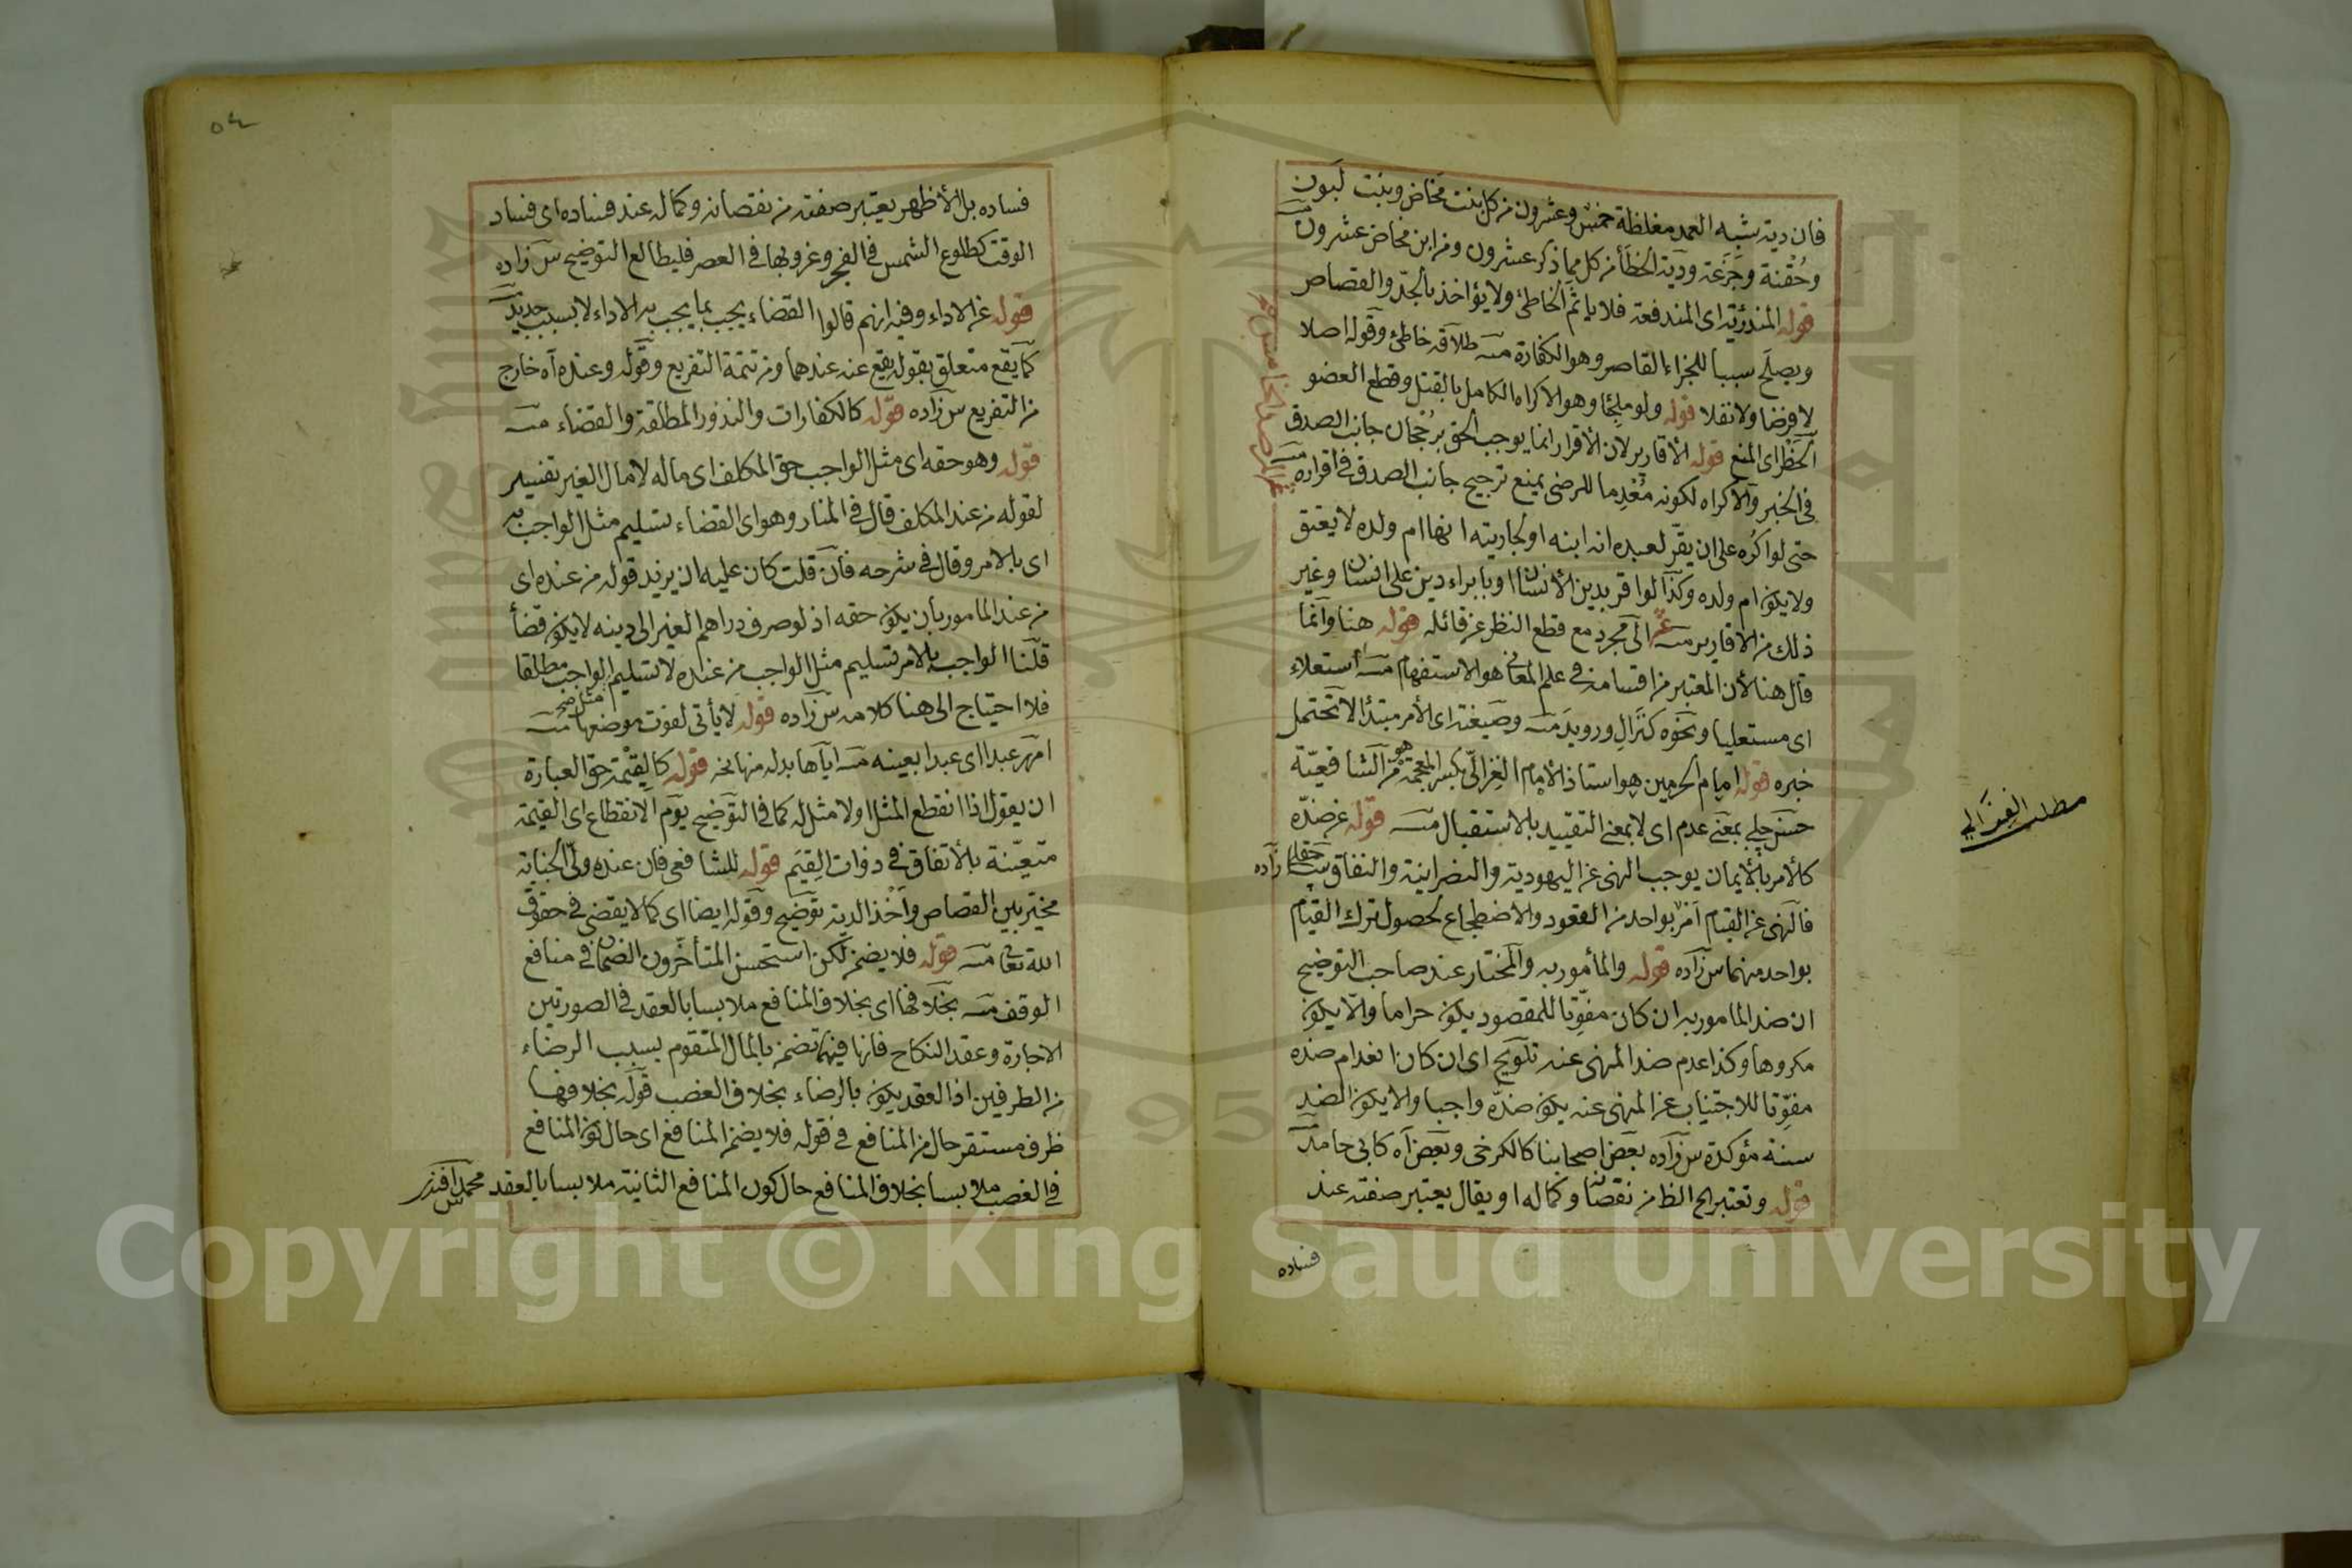 فان دية شبه العمد مغلظة خمس وعشرون من كل بنت مخاض وبنت لبون
وحقة وجذعة ودية الخطأ من كل مما ذكر عشرون ومن ابن مخاض عشرون منه
قوله المندرئة اى المندفعة فلا يأثم الخاطئ ولا يؤاخذ بالحد والقصاص
ويصلح سببا للجزاء القاصر وهو الكفارة منه طلاقه خاطئ وقوله اصلا
لا فرضا ولا نفلا قوله ولو ملجئا وهو الاكراه الكامل بالقتل وقطع العضو
الحظر اى المنع قوله الأقارير لان الأقرار انما يوجب الحق برجحان جانب الصدق
فى الخبر والاكراه لكونه معدما للرضى يمنع ترجيح جانب الصدق فى اقراره منه
حتى لو اكره على ان يقر لعبده انه ابنه او لجاريته انها ام ولده لا يعتق
ولا يكون ام ولده وكذا لو اقر بدين لأنسان او بابراء دين على انسان وغير
ذلك من الاقارير منه الى مجرد مع قطع النظر عن قائله قوله هنا وانما
قال هنا لأن المعتبر من اقسامه فى علم المعانى هو الاستفهام منه استعلاء
اى مستعليا ونحوه كنزال ورويد منه وصيغته اى الأمر مبتدأ لا تحتمل
خبره قوله امام الحرمين هو استاذ الامام الغزالى بكسر المعجمة هو من الشافعية
حسن چلبى بمعنى عدم اى لا بمعنى التقييد بالاستقبال منه قوله عن ضده
كالأمر بالأيمان يوجب النهى عن اليهودية والنصرانية والنفاق حقله س زاده
فالنهى عن القيام امر بواحد من القعود والاضطجاع لحصول ترك القيام
بواحد منهما س زاده قوله والمأمور به والمختار عند صاحب التوضيح
ان ضد المامور به ان كان مفوتا للمقصود يكون حراما والا يكون
مكروها وكذا عدم ضد المنهى عنه تلويح اى ان كان انعدام ضده
مفوتا للاجتناب عن المنهى عنه يكون ضده واجبا والا يكون الضد
سنة مؤكدة س زاده بعض اصحابنا كالكرخى وبعض اه كابى حامد منه
قوله وتعتبر الخ الظ من نقصانه وكماله او يقال يعتبر صفته عند
فساده
مطلب الغزالي
٥٤
فساده بل الأظهر يعتبر صفته من نقصانه وكماله عند فساده اى فساد
الوقت كطلوع الشمس فى الفجر وغروبها فى العصر فليطالع التوضيح س زاده
قوله عن الاداء وفيه انهم قالوا القضاء يجب بما يجب به الاداء لا بسبب جديد منه
كما يقع متعلق بقوله يقع عنه عندهما ومن تتمة التفريع وقوله وعنده اه خارج
من التفريع س زاده قوله كالكفارات والنذور المطلقة والقضاء منه
قوله وهو حقه اى مثل الواجب حق المكلف اى ماله لا مال الغير تفسير
لقوله من عند المكلف قال فى المنار وهو اى القضاء تسليم مثل الواجب به
اى بالامر وقال فى شرحه فان قلت كان عليه ان يزيد قوله من عنده اى
من عند المامور بان يكون حقه اذ لو صرف دراهم الغير الى دينه لا يكون قضأ
قلنا الواجب بالامر تسليم مثل الواجب من عنده لا تسليم الواجب مطلقا
مثل صح
فلا احتياج الى هنا كلامه س زاده قوله لا يأتى لفوت موضعها منه
امهر عبدا اى عبدا بعينه منه اياها بدله منها نخه قوله كالقيمة حق العبارة
ان يقول اذا انقطع المثل او لا مثل له كما فى التوضيح يوم الانقطاع اى القيمة
متعينة بالأتفاق فى ذوات القيم قوله للشافعى فان عنده ولى الجناية
مخير بين القصاص واخذ الدية توضيح وقوله ايضا اى كما لا يقضى فى حقوق
الله تعالى منه قوله فلا يضمن لكن استحسن المتأخرون الضمان فى منافع
الوقف منه بخلافها اى بخلاف المنافع ملابسا بالعقد فى الصورتين
الاجارة وعقد النكاح فانها فيهما تضمن بالمال المتقوم بسبب الرضاء
من الطرفين اذ العقد يكون بالرضاء بخلاف الغصب قوله بخلافها
ظرف مستقر حال من المنافع فى قوله فلا يضمن المنافع اى حال كون المنافع
فى الغصب ملابسا بخلاف المنافع حال كون المنافع الثانية ملابسا بالعقد محمد افندى
Copyright © King Saud University
1957